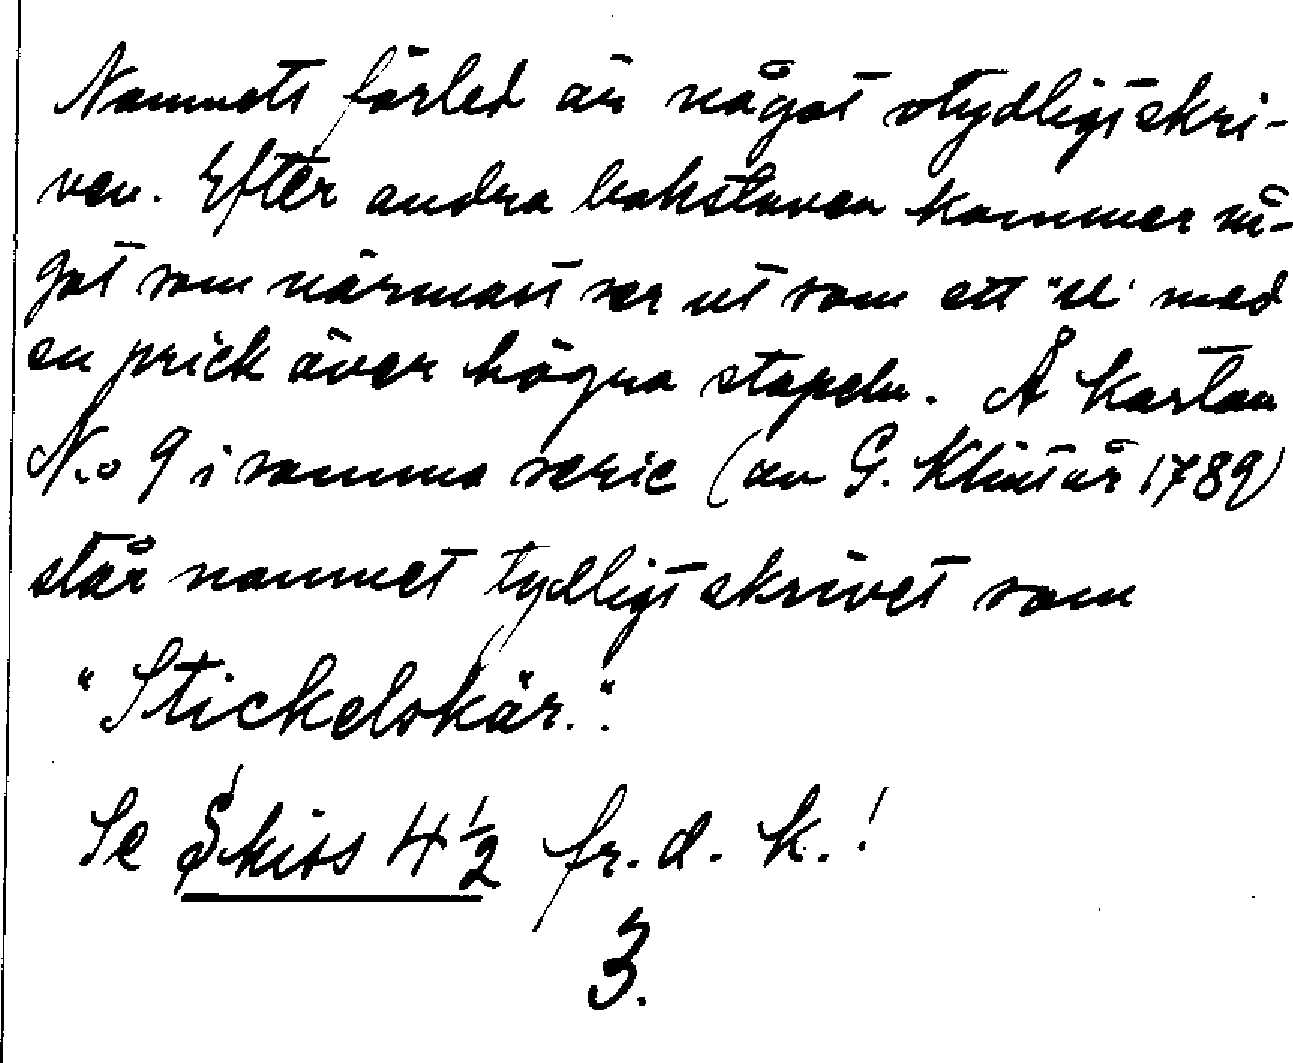 Namnets förled är något otydligt skri-
ven. Efter andra bokstaven kommer nå-
got som närmast ser ut som ett "u" med
en prick över högra stapeln. Å kartan
N:o 9 i samma serie (av G. Klint år 1789)
står namnet tydligt skrivet som
"Stickelskär.".
Se Skiss 4 1/2 fr. d. k.!
3.